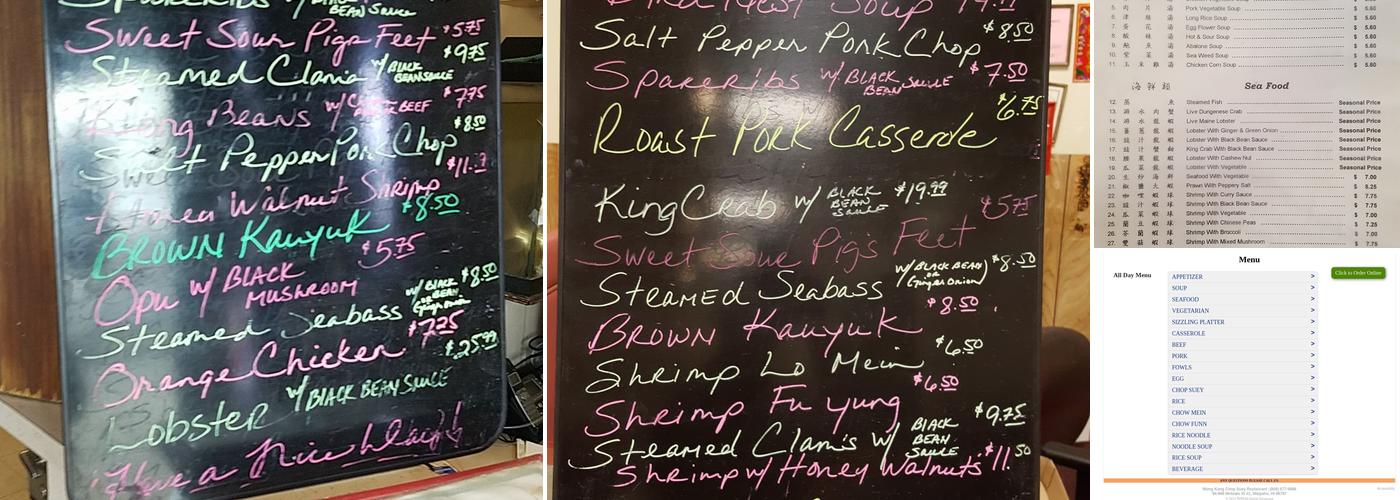 Spareribs w/ BLACK
BEAN Sauce
Sweet Sour Pigs Feet $5.75
Steamed Clams w/ BLACK
BEANSAUCE $9.75
Beans w/ BEEF $7.75
Salt Pepper Pork Chop $8.50
Honey Walnut Shrimp
BROWN Kauyuk $8.50
Opu w/ BLACK
MUSHROOM $5.75
Steamed Seabass w/ BLACK
BEAN
OR
Ginger Onion $8.50
Orange Chicken $7.25
Lobster w/ BLACK BEAN SAUCE $25.99
Have a Nice Day!
Soup
Salt Pepper Pork Chop $8.50
Spareribs w/ BLACK
BEAN SAUCE $7.50
Roast Pork Casserole $6.75
King Crab w/ BLACK
BEAN
SAUCE $19.99
Sweet Sour Pig's Feet $5.75
Steamed Seabass w/ BLACK BEAN
OR
Ginger Onion) $8.50
BROWN Kauyuk $8.50
Shrimp Lo Mein $6.50
Shrimp Fu yung $6.50
Steamed Clams w/ BLACK
BEAN
SAUCE $9.75
Shrimp w/ Honey Walnuts $11.50
5. Pork Vegetable Soup $ 5.60
6. Long Rice Soup $ 5.60
7. Egg Flower Soup $ 5.60
8. Hot & Sour Soup $ 5.60
9. Abalone Soup $ 5.60
10. Sea Weed Soup $ 5.60
11. 玉 米 雞 湯 Chicken Corn Soup $ 5.60
海 鮮 類 Sea Food
12. Steamed Fish Seasonal Price
13. Live Dungenese Crab Seasonal Price
14. Live Maine Lobster Seasonal Price
15. Lobster With Ginger & Green Onion Seasonal Price
16. Lobster With Black Bean Sauce Seasonal Price
17. King Crab With Black Bean Sauce Seasonal Price
18. Lobster With Cashew Nut Seasonal Price
19. Lobster With Vegetable Seasonal Price
20. Seafood With Vegetable $ 7.00
21. Prawn With Peppery Salt $ 8.25
22. Shrimp With Curry Sauce $ 7.75
23. Shrimp With Black Bean Sauce $ 7.75
24. Shrimp With Vegetable $ 7.00
25. Shrimp With Chinese Peas $ 7.25
26. Shrimp With Broccoli $ 7.00
27. Shrimp With Mixed Mushroom $ 7.75
Menu
All Day Menu
Click to Order Online
APPETIZER >
SOUP >
SEAFOOD >
VEGETARIAN >
SIZZLING PLATTER >
CASSEROLE >
BEEF >
PORK >
FOWLS >
EGG >
CHOP SUEY >
RICE >
CHOW MEIN >
CHOW FUNN >
RICE NOODLE >
NOODLE SOUP >
RICE SOUP >
BEVERAGE >